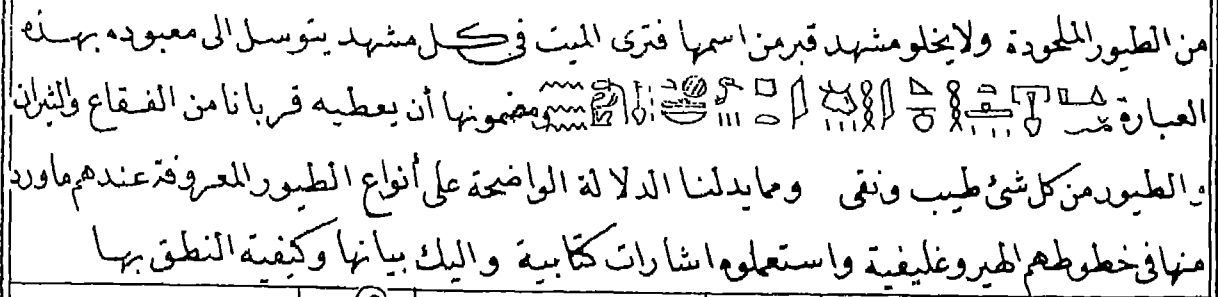 من الطيور الملحودة ولا يخلو مشهد قبر من اسمها فترى الميت في كل مشهد يتوسل الى معبوده بهذه
العبارة ومضمونها أن يعطيه قربانا من الفقاع والثيران
والطيور من كل شئ طيب ونقى ومما يدلنا الدلالة الواضحة على أنواع الطيور المعروفة عندهم ماورد
منها فى خطوطهم الهيروغليفية واستعملوه اشارات كتابية واليك بيانها وكيفية النطق بها